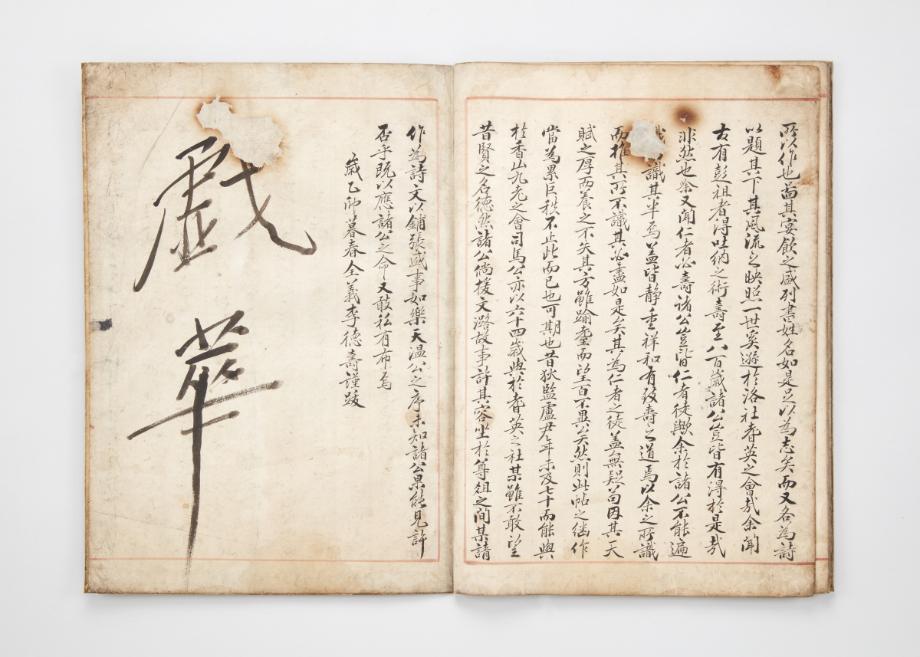 所以作也苟其宴飮之盛列書姓名如是足以為志矣而又各為詩
以題其下其風流之映照一世奚遜於洛社耆英之會哉余聞
古有彭祖者得吐納之術壽至八百歲諸公豈皆有得於是哉
非然也余又聞仁者必壽諸公豈皆仁者徒歟余於諸公不能遍
識其半焉蓋皆靜重祥和有致壽之道焉以余之所識
而推其所不識其必盡如是矣其為仁者之徒蓋無疑苟因其天
賦之厚而養之不失其方雖踰耋而望百不異公矣然則此帖之繼作
當為累巨秩不止此而已也可期也昔狄監盧尹年未及七十而能與
於香山九老之會司馬公亦以六十四歲與於耆英之社某雖不敢望
昔賢之名德然諸公倘援文潞故事許其容坐於尊俎之間某請
作為詩文以鋪張盛事如樂天溫公之序未知諸公果能見許
否乎既以應諸公之命又敢私有布焉
歲乙卯暮春全義李德壽謹跋
戱